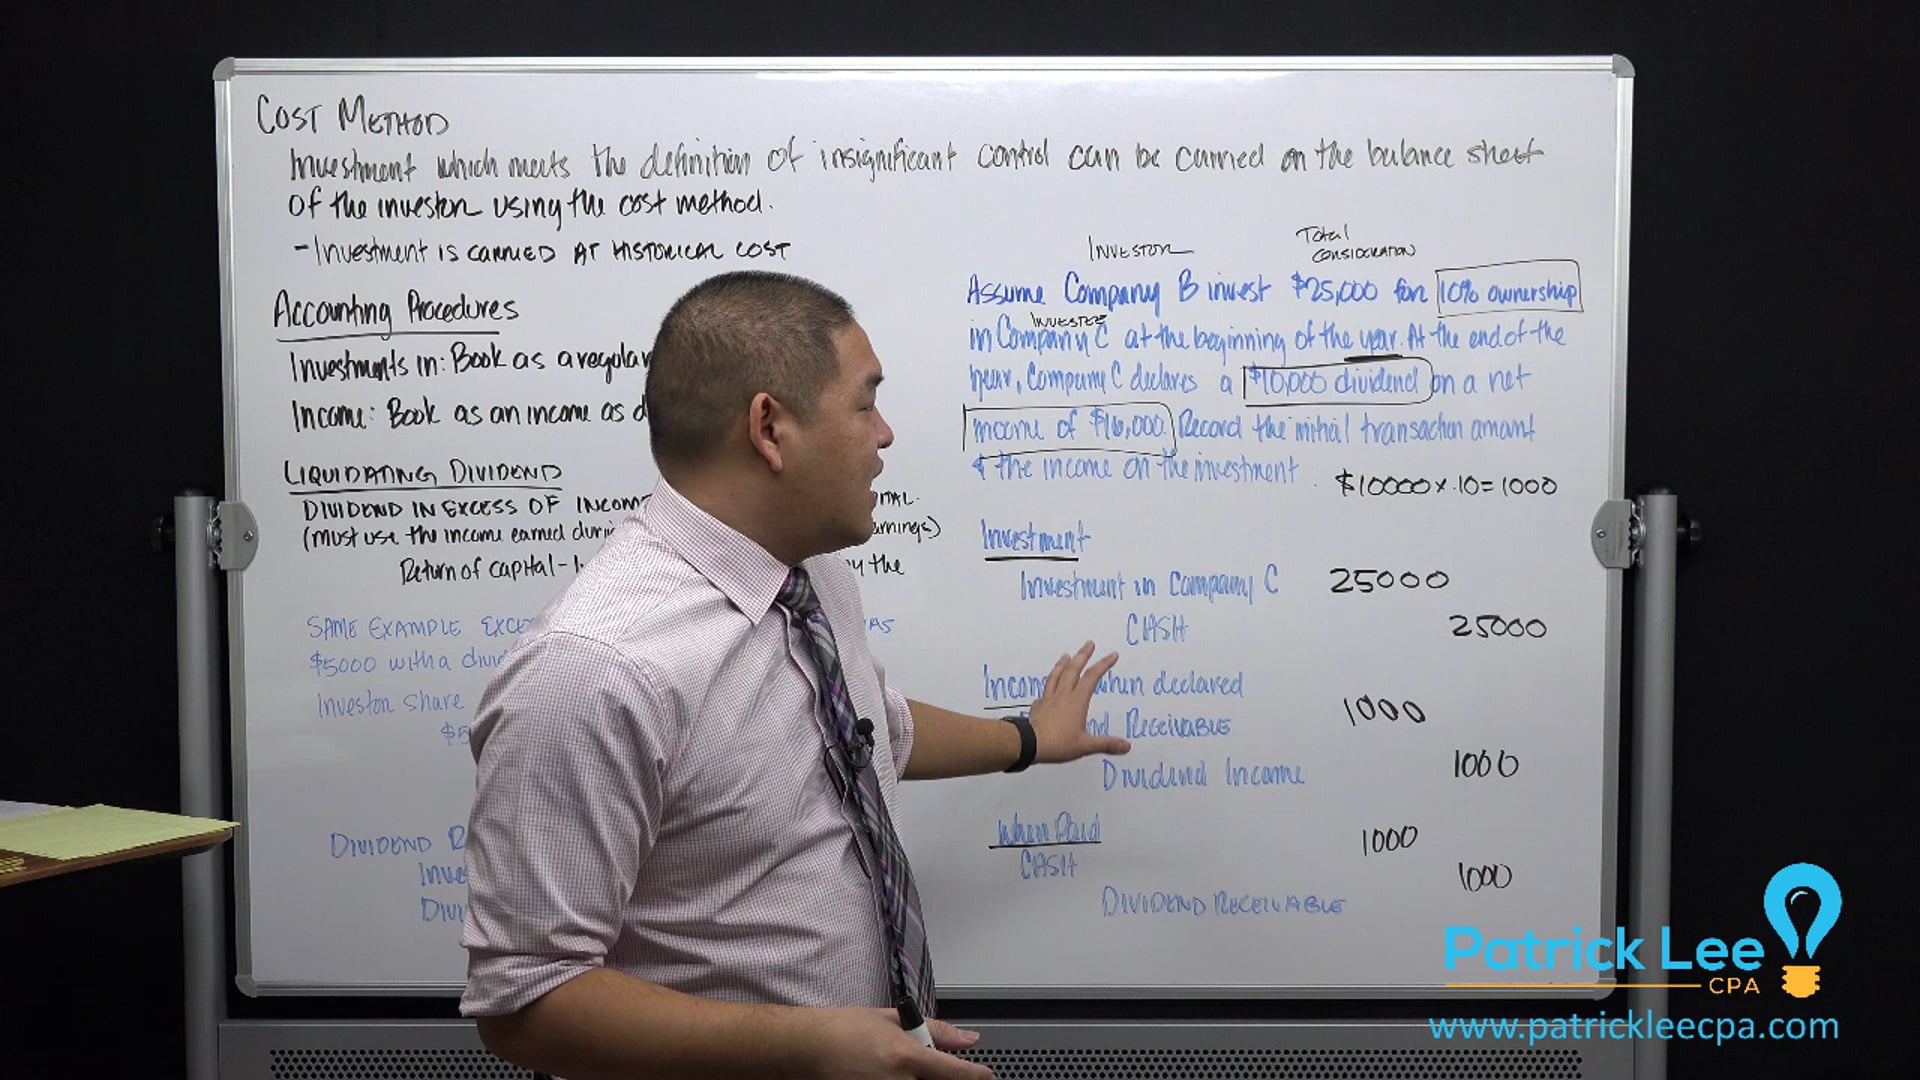 COST METHOD
Investment which meets the definition of insignificant control can be carried on the balance sheet
of the investor using the cost method.
- Investment is carried at historical cost
Accounting Procedures
Investments in: Book as a regular
Income: Book as an income as d
LIQUIDATING DIVIDEND
DIVIDEND IN EXCESS OF INCOME ITAL.
(must use the income earned duri arnings)
Return of capital - by the
SAME EXAMPLE EXCE AS
$5000 with a divid
Investor share
$5
DIVIDEND R
Inve
Divi
INVESTOR
Total
CONSIDERATION
Assume Company B invest $25,000 for 10% ownership
INVESTEE
in Company C at the beginning of the year. At the end of the
year, Company C declares a $10,000 dividend on a net
income of $16,000. Record the initial transaction amount
& the income on the investment
$10000 x .10 = 1000
Investment
Investment in Company C 25000
CASH 25000
Incom when declared
nd Receivable 1000
Dividend Income 1000
When Paid
CASH 1000
DIVIDEND RECEIVABLE 1000
Patrick Lee
CPA
www.patrickleecpa.com